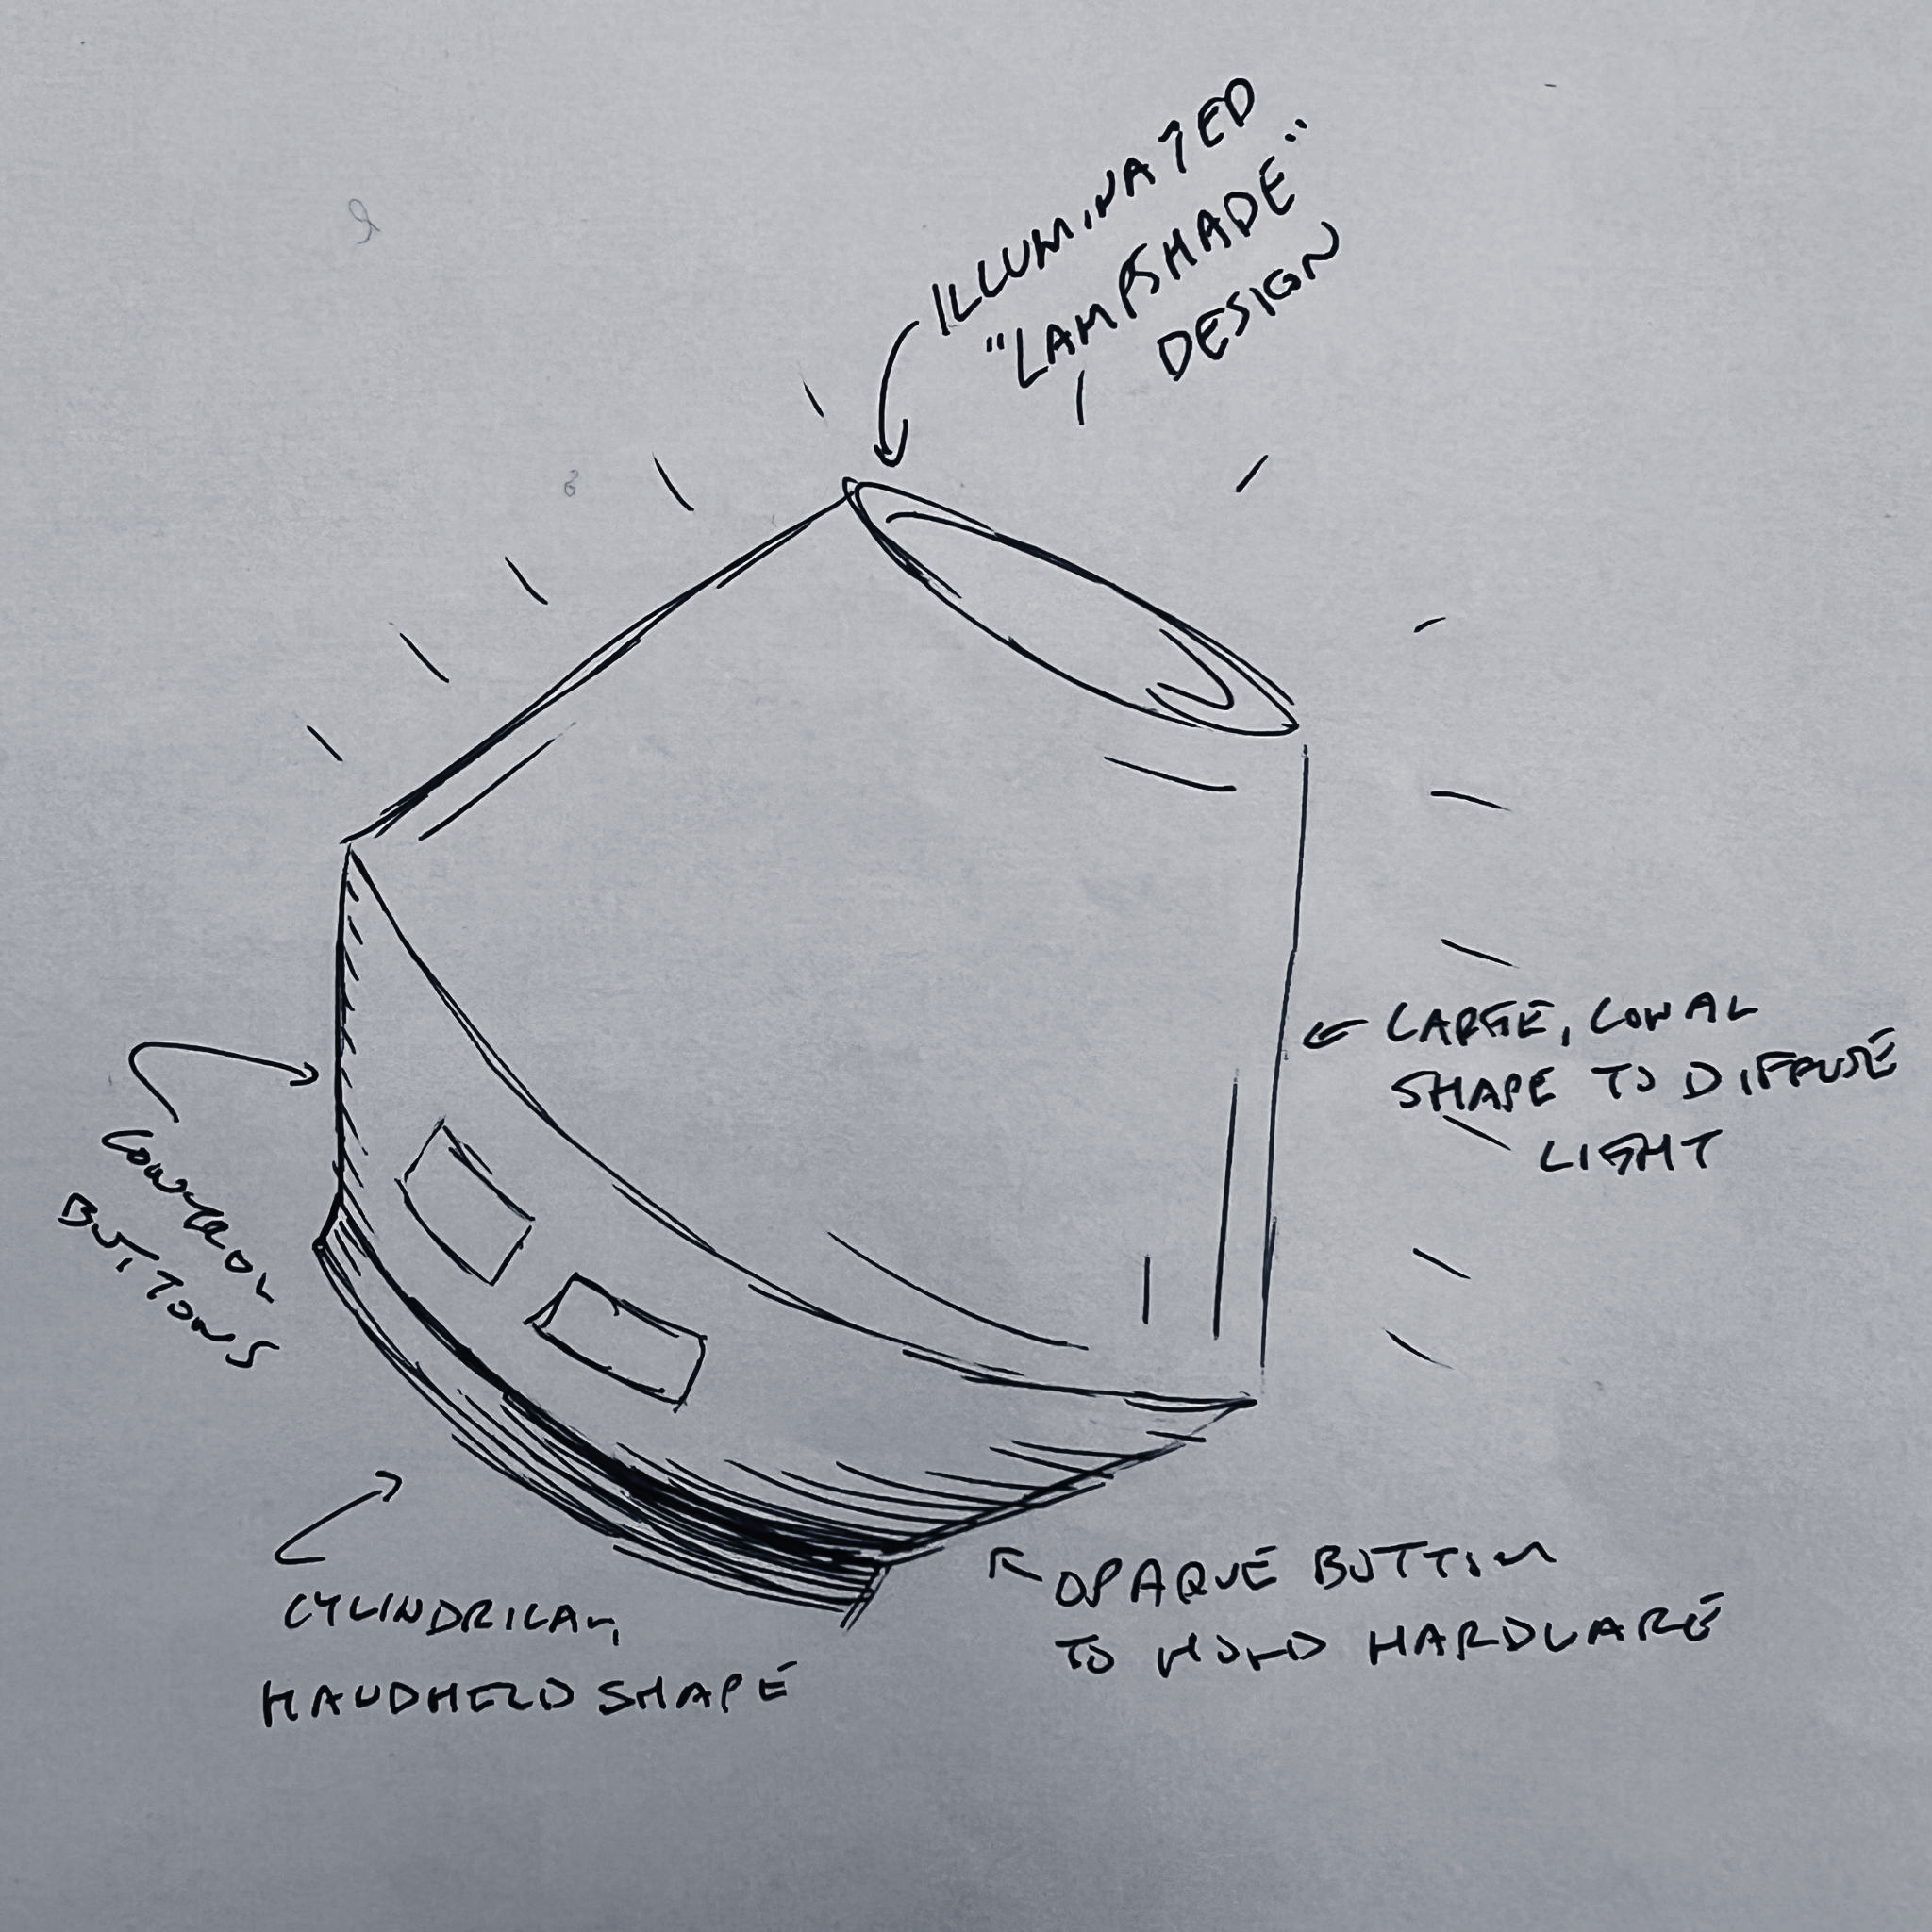 ILLUMINATED
"LAMPSHADE"
DESIGN
LARGE, CONAL
SHAPE TO DIFFUSE
LIGHT
CONTROL
BUTTONS
CYLINDRICAL,
HANDHELD SHAPE
OPAQUE BOTTOM
TO HOLD HARDWARE